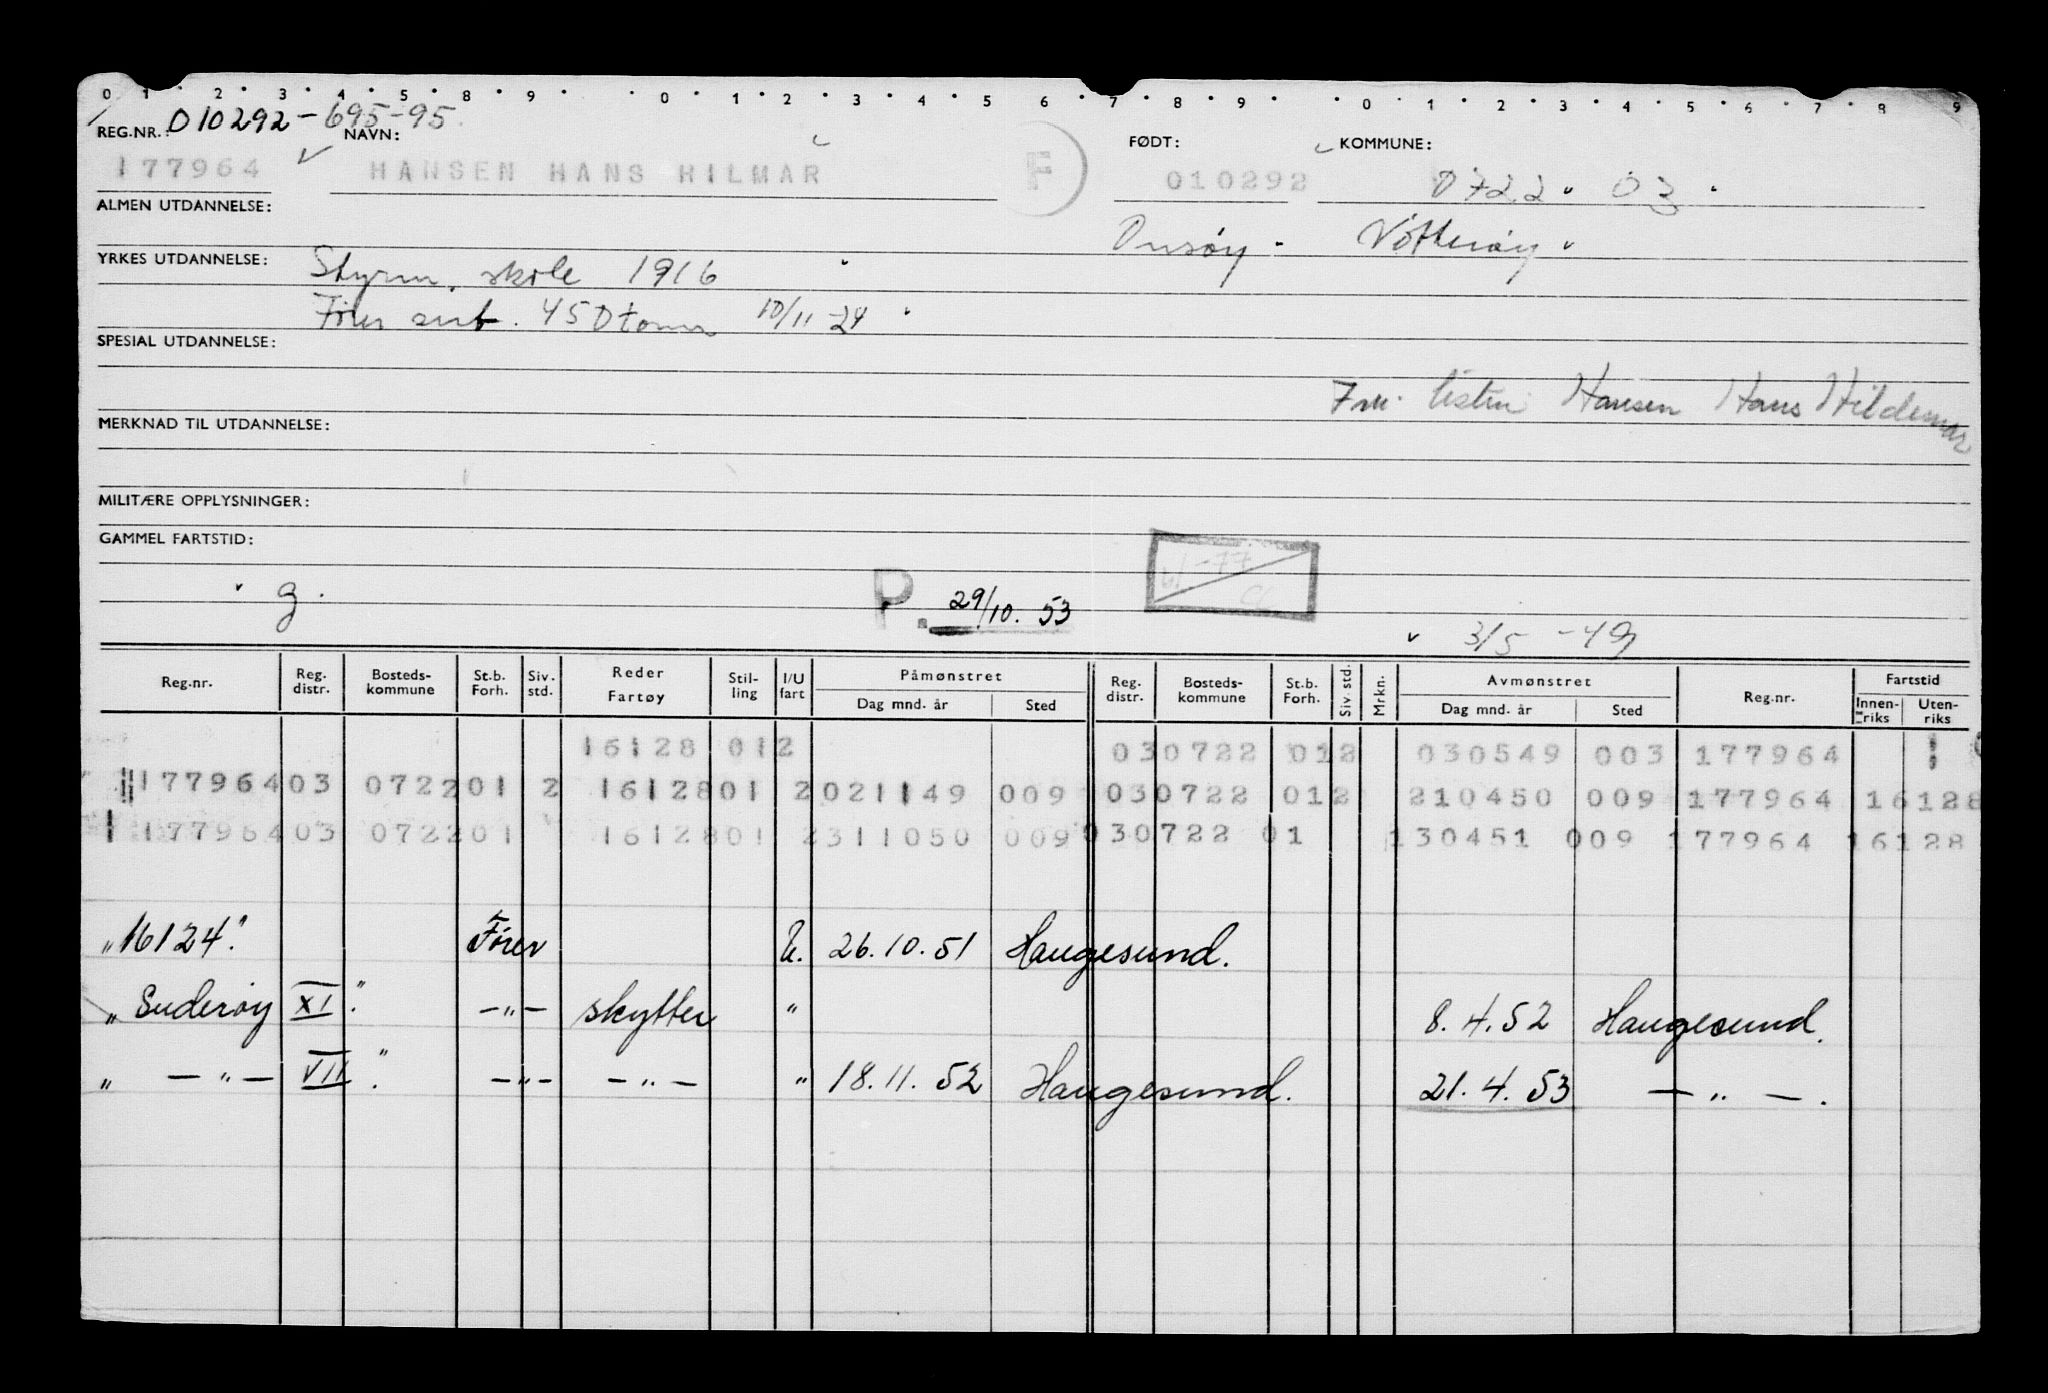 0 1 2 3 4 5 8 9 0 1 2 3 4 5 6 7 8 9 0 1 2 3 4 5 6 7 8 9
REG.NR.: 010292-695-95. NAVN: FØDT: KOMMUNE:
177964 HANSEN HANS HILMAR F 010292 0722 03
ALMEN UTDANNELSE:
Onsøy Nøtterøy
YRKES UTDANNELSE: Styrm. skole 1916
Fører sert. 450 tonn 10/11 24
SPESIAL UTDANNELSE:
listen Hansen Hans Hildemar
MERKNAD TIL UTDANNELSE:
MILITÆRE OPPLYSNINGER:
GAMMEL FARTSTID:
g. P. 29/10. 53
3/5 -49
Reg.nr. Reg. distr. Bosteds-kommune St.b. Forh. Siv. std. Reder Fartøy Stil-ling I/U fart Påmønstret Dag mnd. år Sted Reg. distr. Bosteds-kommune St.b. Forh. Siv. std. Mrkn. Avmønstret Dag mnd. år Sted Reg.nr. Fartstid Innen-riks Uten-riks
16128 012 030722 012 030549 003 177964
177964 03 072201 2 1612801 2021149 009 030722 012 210450 009 177964 16128
177964 03 072201 1612801 2311050 009 030722 01 130451 009 177964 16128
„16124." Fører U. 26.10.51 Haugesund.
„Suderøy XI." -„- skytter " 8.4.52 Haugesund.
„ -„- VII." -„- -„- " 18.11.52 Haugesund. 21.4.53 -„-.